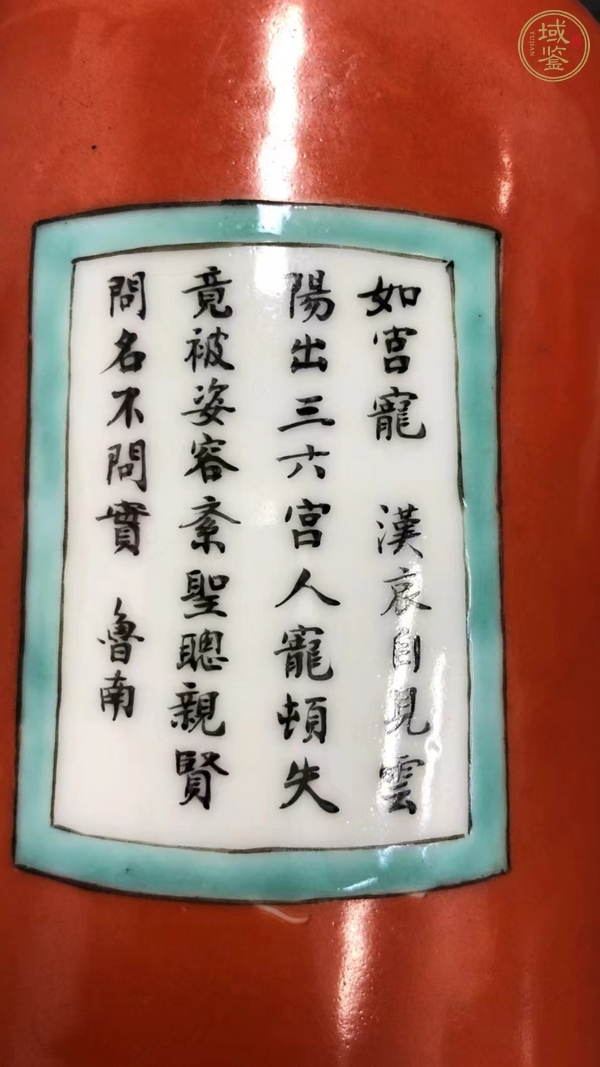 如宫寵 漢哀自見雲
陽出三六宮人寵頓失
竟被姿容紊聖聰親賢
問名不問實 魯南
域鉴
YUJIAN